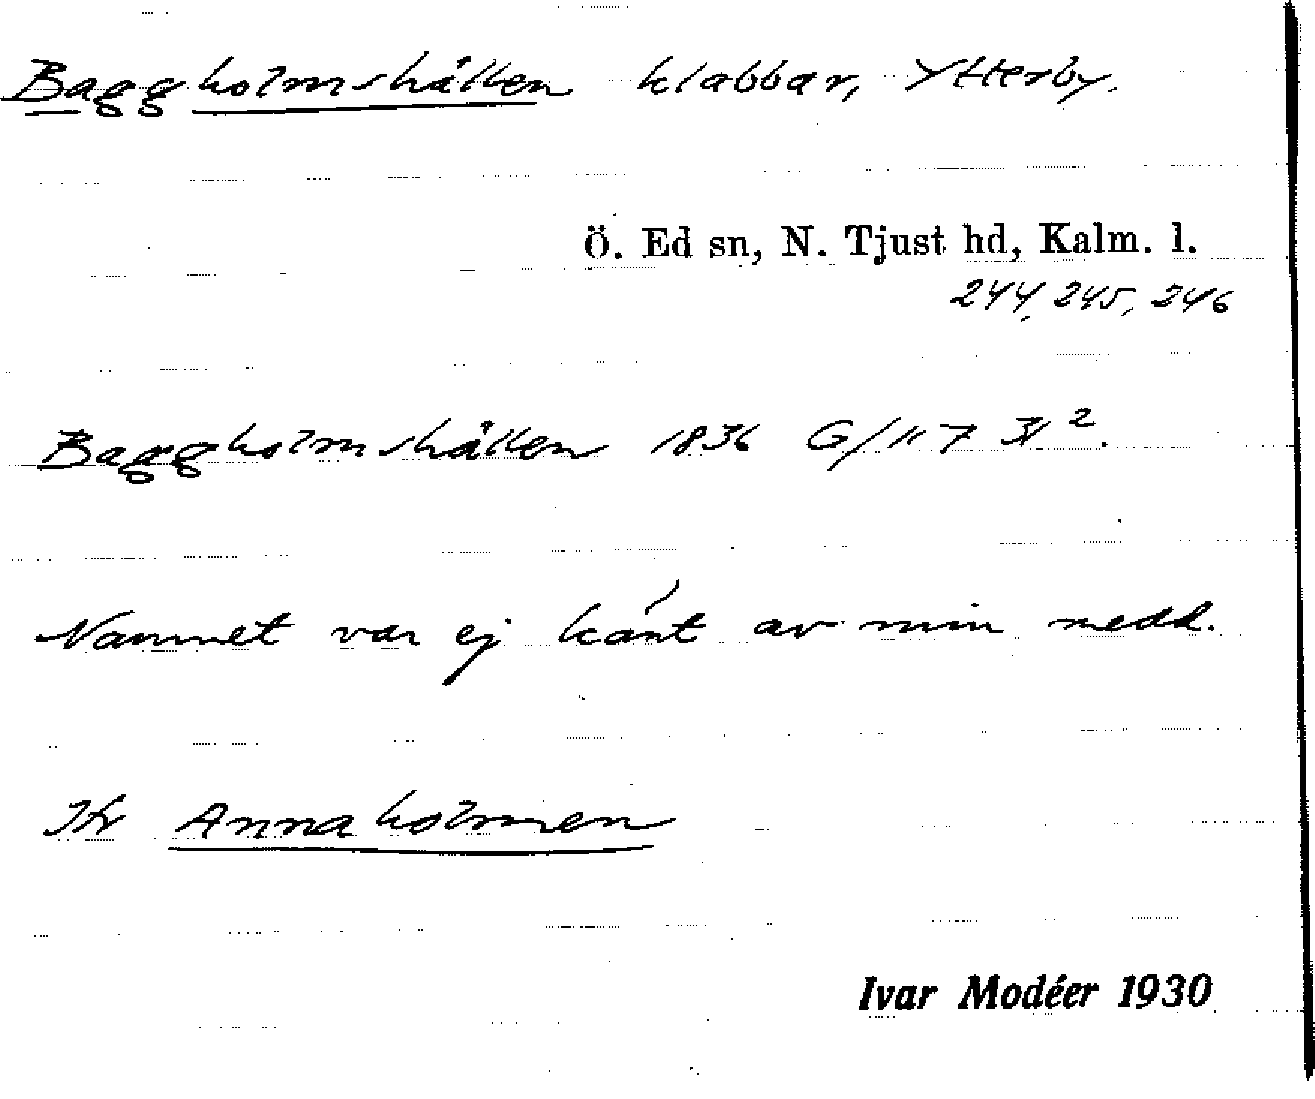 Baggholmshällen klabbar, Ytterby.
Ö. Ed sn, N. Tjust hd, Kalm. l.
244, 245, 246
Baggholmshällen 1836 G/117
Namnet var ej känt av min medd.
Annaholmen
Ivar Modéer 1930